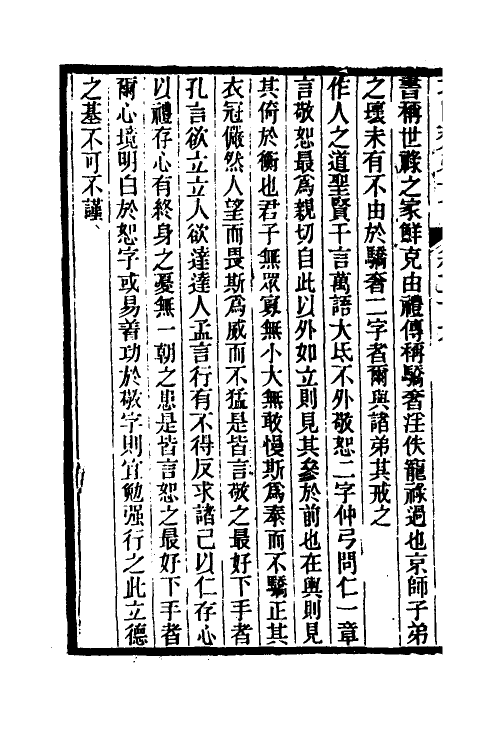 書稱世祿之家鮮克由禮傳稱驕奢淫佚寵祿過也京師子弟
之壞未有不由於驕奢二字者爾與諸弟其戒之
作人之道聖賢千言萬語大氐不外敬恕二字仲弓問仁一章
言敬恕最爲親切自此以外如立則見其參於前也在輿則見
其倚於衡也君子無眾寡無小大無敢慢斯爲泰而不驕正其
衣冠儼然人望而畏斯爲威而不猛是皆言敬之最好下手者
孔言欲立立人欲達達人孟言行有不得反求諸己以仁存心
以禮存心有終身之憂無一朝之患是皆言恕之最好下手者
爾心境明白於恕字或易著功於敬字則宜勉强行之此立德
之基不可不謹